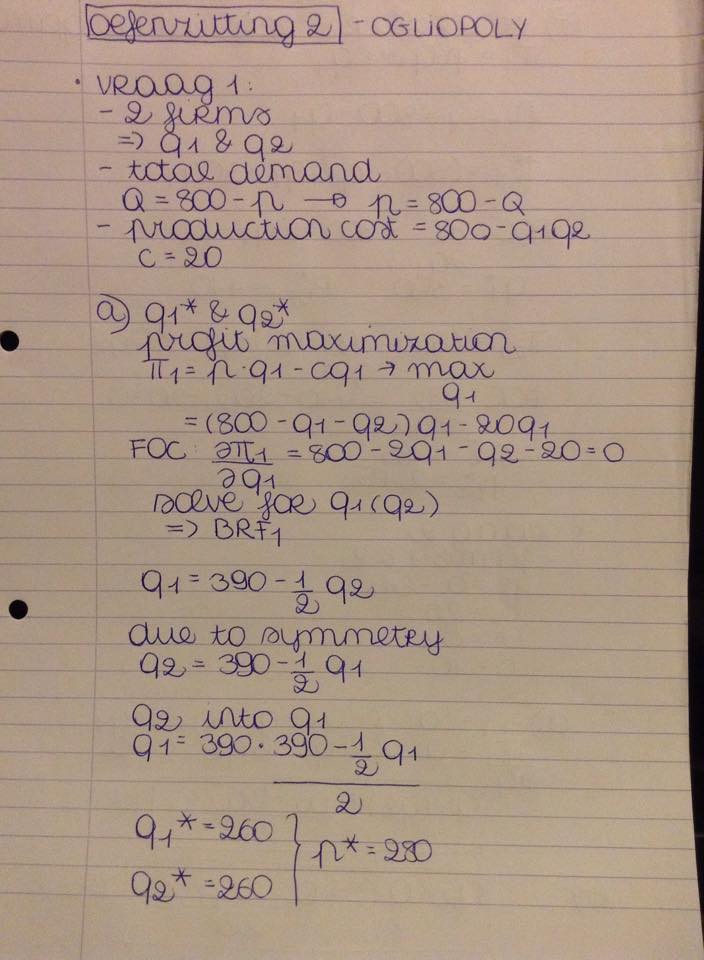 Oefenzitting 2 - OGLIOPOLY
• vraag 1:
- 2 firms
=> q1 & q2
- total demand
Q = 800 - p → p = 800 - Q
- production cost = 800 - q1q2
c = 20
a) q1* & q2*
profit maximization
π1 = p·q1 - cq1 → max
q1
= (800 - q1 - q2) q1 - 20q1
FOC: ∂π1/∂q1 = 800 - 2q1 - q2 - 20 = 0
solve for q1(q2)
=> BRF1
q1 = 390 - 1/2 q2
due to symmetry
q2 = 390 - 1/2 q1
q2 into q1
q1 = 390 · 390 - 1/2 q1
2
q1* = 260
q2* = 260 } p* = 280